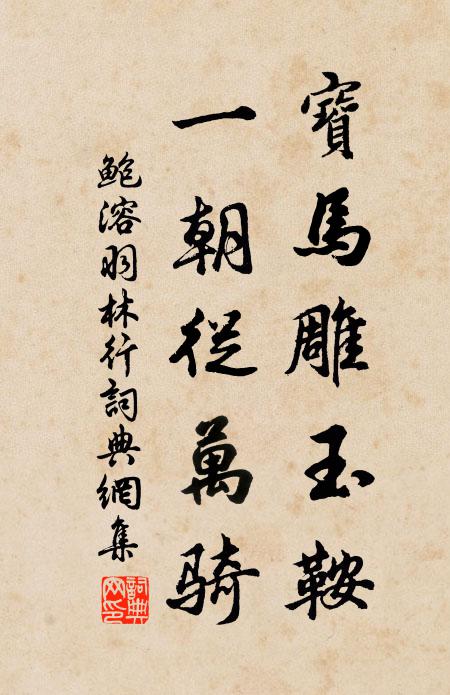 寶馬雕玉鞍
一朝從萬騎
鮑溶羽林行詞典網集
詞典網印